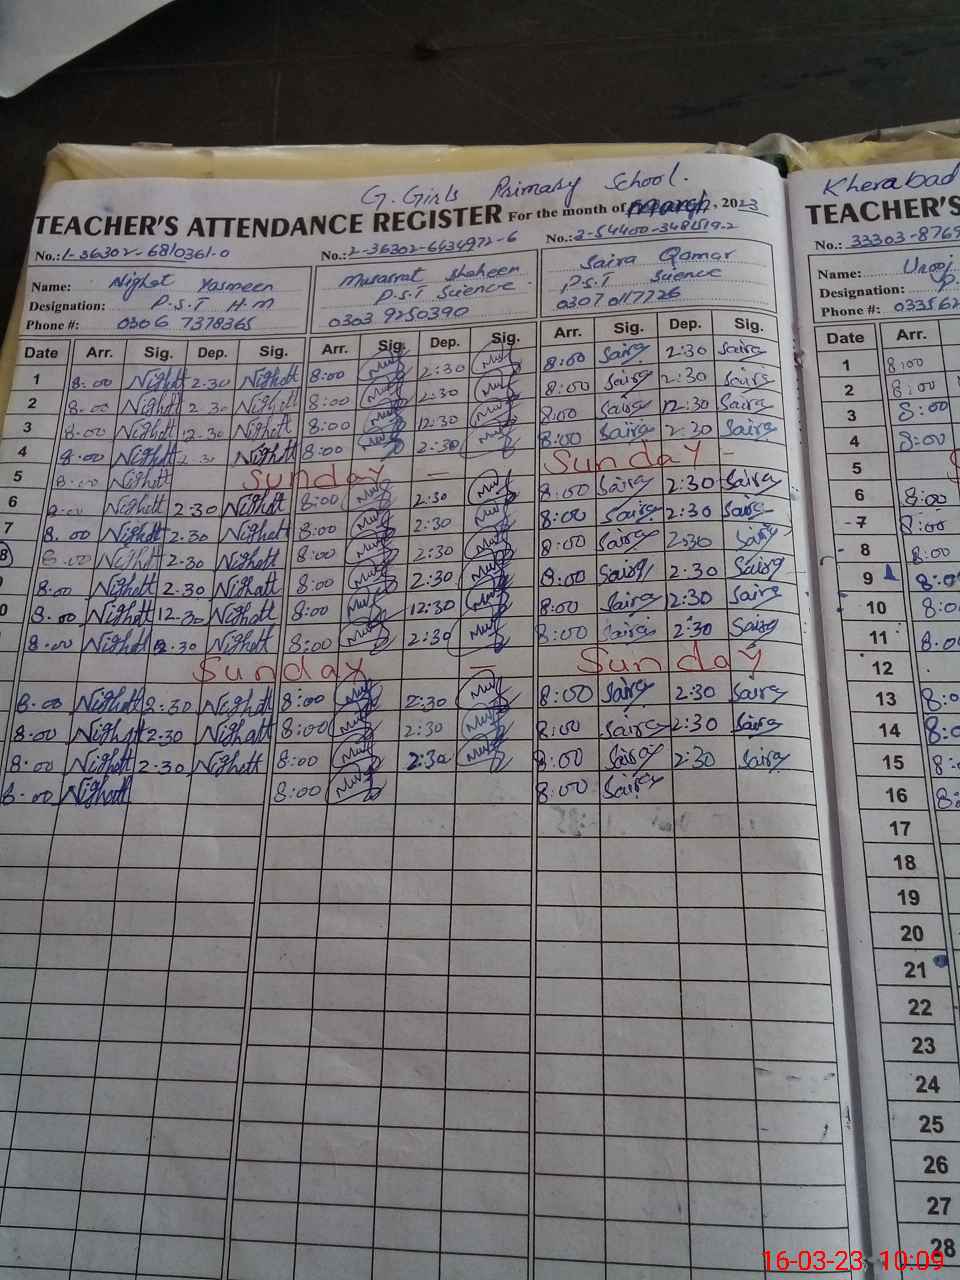 G. Girls Primary School.
Kherabad
TEACHER'S ATTENDANCE REGISTER For the month of March, 2023
TEACHER'S
No.:1-36302-6810361-0 No.:2-36302-6434972-6 No.:3-54400-3481519-2
No.: 33303-8769
Name: Nighat Yasmeen Musarrat Shaheen Saira Qamar
Name: Urooj
Designation: P.S.T H.M P.S.T Science P.S.T Science
Designation:
Phone #: 0306 7378365 0303 9250390 0307 0117726
Phone #: 033562
Date Arr. Sig. Dep. Sig. Arr. Sig. Dep. Sig. Arr. Sig. Dep. Sig.
Date Arr.
1 8:00 Nighatt 2.30 Nighatt 8:00 2:30 8:00 Saira 2:30 Saira
1 8:00
2 8.00 Nighatt 2.30 Nighatt 8:00 2:30 8:00 Saira 2:30 Saira
2 8:00
3 8.00 Nighatt 12.30 Nighatt 8:00 12:30 8:00 Saira 12:30 Saira
3 8:00
4 8.00 Nighatt 2.30 Nighatt 8:00 2:30 8:00 Saira 2:30 Saira
4 8:00
5 8.00 Nighatt Sunday — Sunday -
5
6 8.00 Nighatt 2.30 Nighatt 8:00 2:30 8:00 Saira 2:30 Saira
6 8:00
7 8.00 Nighatt 2.30 Nighatt 8:00 2:30 8:00 Saira 2:30 Saira
-7 8:00
8 8.00 Nighatt 2.30 Nighatt 8:00 2:30 8:00 Saira 2:30 Saira
8 8:00
8.00 Nighatt 2.30 Nighatt 8:00 2:30 8:00 Saira 2:30 Saira
9 8:0
0 8.00 Nighatt 12.30 Nighatt 8:00 12:30 8:00 Saira 12:30 Saira
10 8:0
8.00 Nighatt 2.30 Nighatt 8:00 2:30 8:00 Saira 2:30 Saira
11 8:0
Sunday — Sunday
12
8.00 Nighatt 2.30 Nighatt 8:00 2:30 8:00 Saira 2:30 Saira
13 8:0
8.00 Nighatt 2.30 Nighatt 8:00 2:30 8:00 Saira 2:30 Saira
14 8:0
8.00 Nighatt 2.30 Nighatt 8:00 2:30 8:00 Saira 2:30 Saira
15 8:
8.00 Nighatt 8:00 8:00 Saira
16 8:
17
18
19
20
21
22
23
24
25
26
27
28
16-03-23 10:09